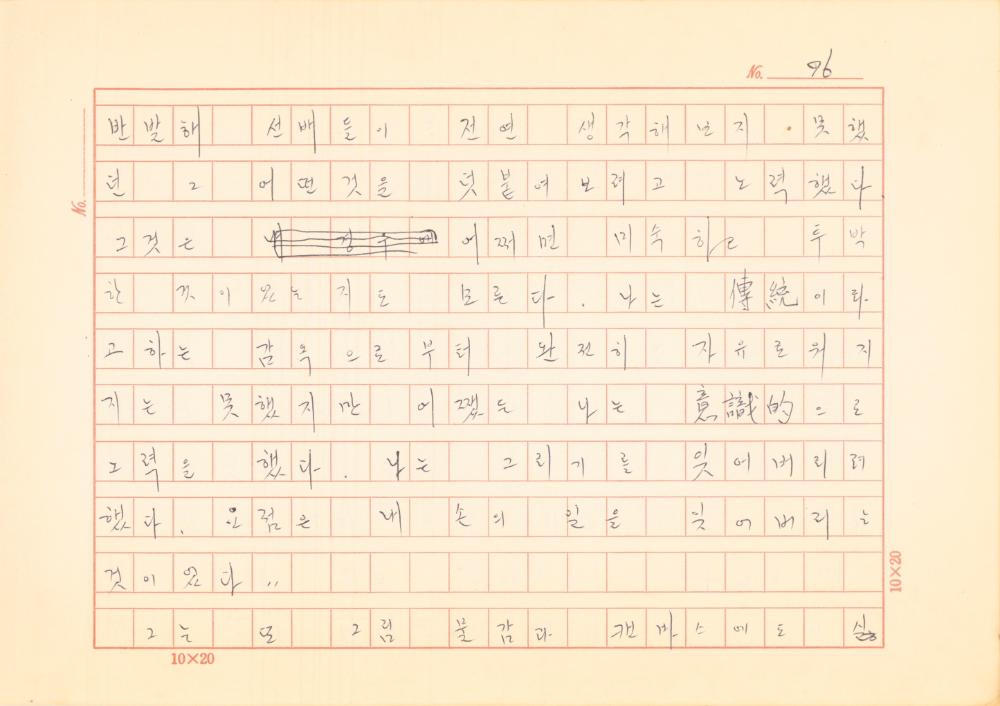 No. 96
반발하 선배들이 전연 생각해 낸지 못했
던 그 어떤것을 덧붙여보려고 노력했다
그것은 어쩌면 미숙하고 투박
한 것이었는지도 모른다. 나는 傳統이라
고 하는 감옥으로부터 완전히 자유로워지
지는 못했지만 어쨌든 나는 意識的으로
노력을 했다. 나는 그리기를 잊어버리려
했다. 요점은 내 손의 일을 잊어버리는
것이었다"
그는 또 그림 물감과 캔바스에도
No.
10×20
10×20